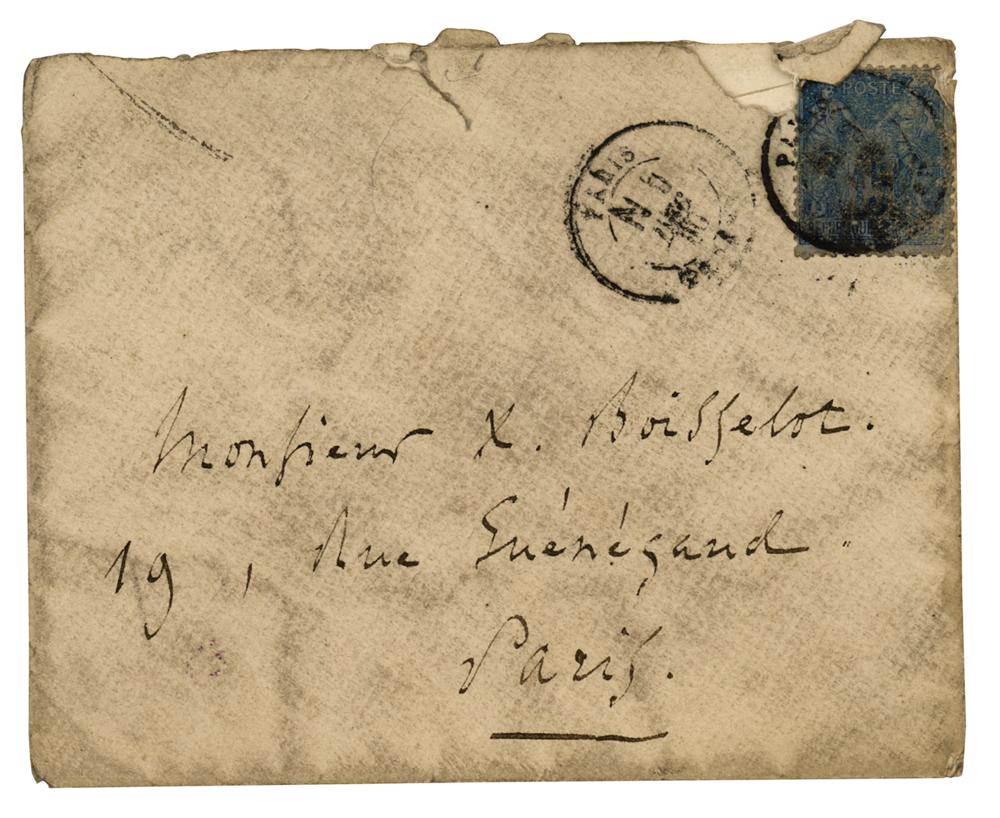 POSTE
PARIS
Monsieur X. Boisselot.
19, Rue Guénégaud.
Paris.